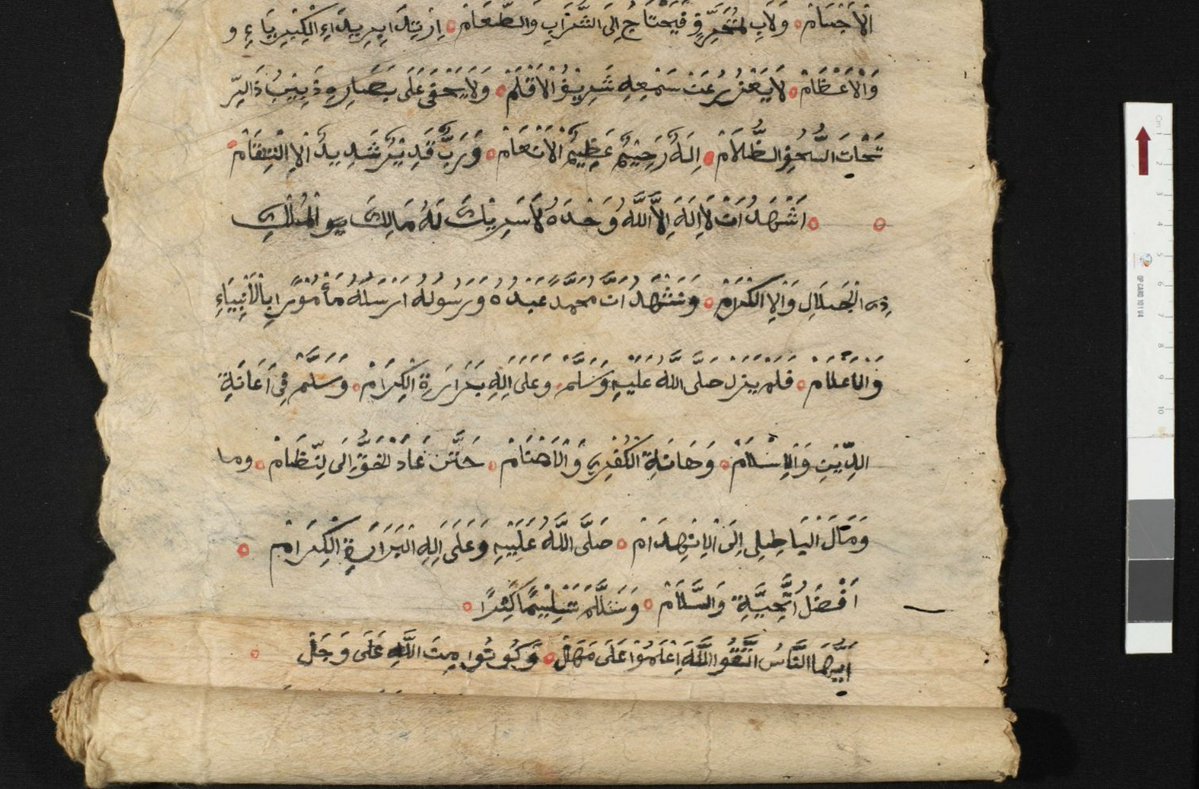 الْأَجْسَامْ ۝ وَلَابِ لمُتَحَيِّزٍ فَيَحْتَاجُ اِلَى الشَّرَابِ وَالطَّعَامْ ۝ اِرْتِدَاءِ الْكِبْرِيَاءِ وَ
وَالْاَعْظَامْ ۝ لَا يَعْزُبُ عَنْ سَمْعِهِ شَرِيْفُ الْاَقْلَمْ ۝ وَلَا يَخْفَى عَلَى بَصَارِهِ دَبِيْبُ
تَحْتَ الظَّلَامْ ۝ اِلَهٌ رَحِيْمٌ عَظِيْمُ الْاَنْعَامْ ۝ وَرَبٌّ قَدِيْرٌ شَدِيدُ الْاِنْتِقَامْ
۝ ۝ اَشْهَدُ اَنْ لَا اِلَهَ اِلَّا اللَّهُ وَحْدَهُ لَا سَرِيْكَ لَهُ مَالِكَ يو الْمُلْكِ
ذِه الْجَلَالِ وَالْاِكْرَامْ ۝ وَنَشْهَدُ اَنَّ مُحَمَّدًا عَبْدُهُ وَرَسُولُهُ اَرْسَلَهُ مَأْمُوْرًا بِالْأَنْبِيَاءِ
وَالْأَعْلَامْ ۝ فَلَمْ يَزَلْ صَلَّى اللَّهُ عَلَيْهِ وَسَلَّمْ ۝ وَعَلَى اَلِهِ بَرَارَةِ الْكِرَامْ ۝ وَسَلَّمْ فِى اَعَانَةِ
الدِّيْنِ وَالْاِسْلَامْ ۝ وَهَانَةِ الْكُفْرِى وَالْاَهْتَامْ ۝ حَتَّى عَادَ الْحَقُّ اِلَى لِنِّظَامْ ۝ وما
وَمَالَ الْبَاطِلِى اِلَى الْاِنْهِدَامْ ۝ صَلَّى اللَّهُ عَلَيْهِ وَعَلَى اَلِهِ الْبَرَارَةِ الْكِرَامْ ۝
اَفْضَلُ التَّحِيَّةِ وَالسَّلَامْ ۝ وَسَلَّمَ تَسْلِيْمًا كَثِيْرًا ۝
اَيُّهَا النَّاسُ اتَّقُوا اللَّهَ اِعْلَمُوْا عَلَى مَهَلْ ۝ وَكُوْنُوا مِنَ اللَّهِ عَلَى وَجَلْ ۝
cm 1 2 3 4 5 6 7 8 9 10
QP CARD 101 V4